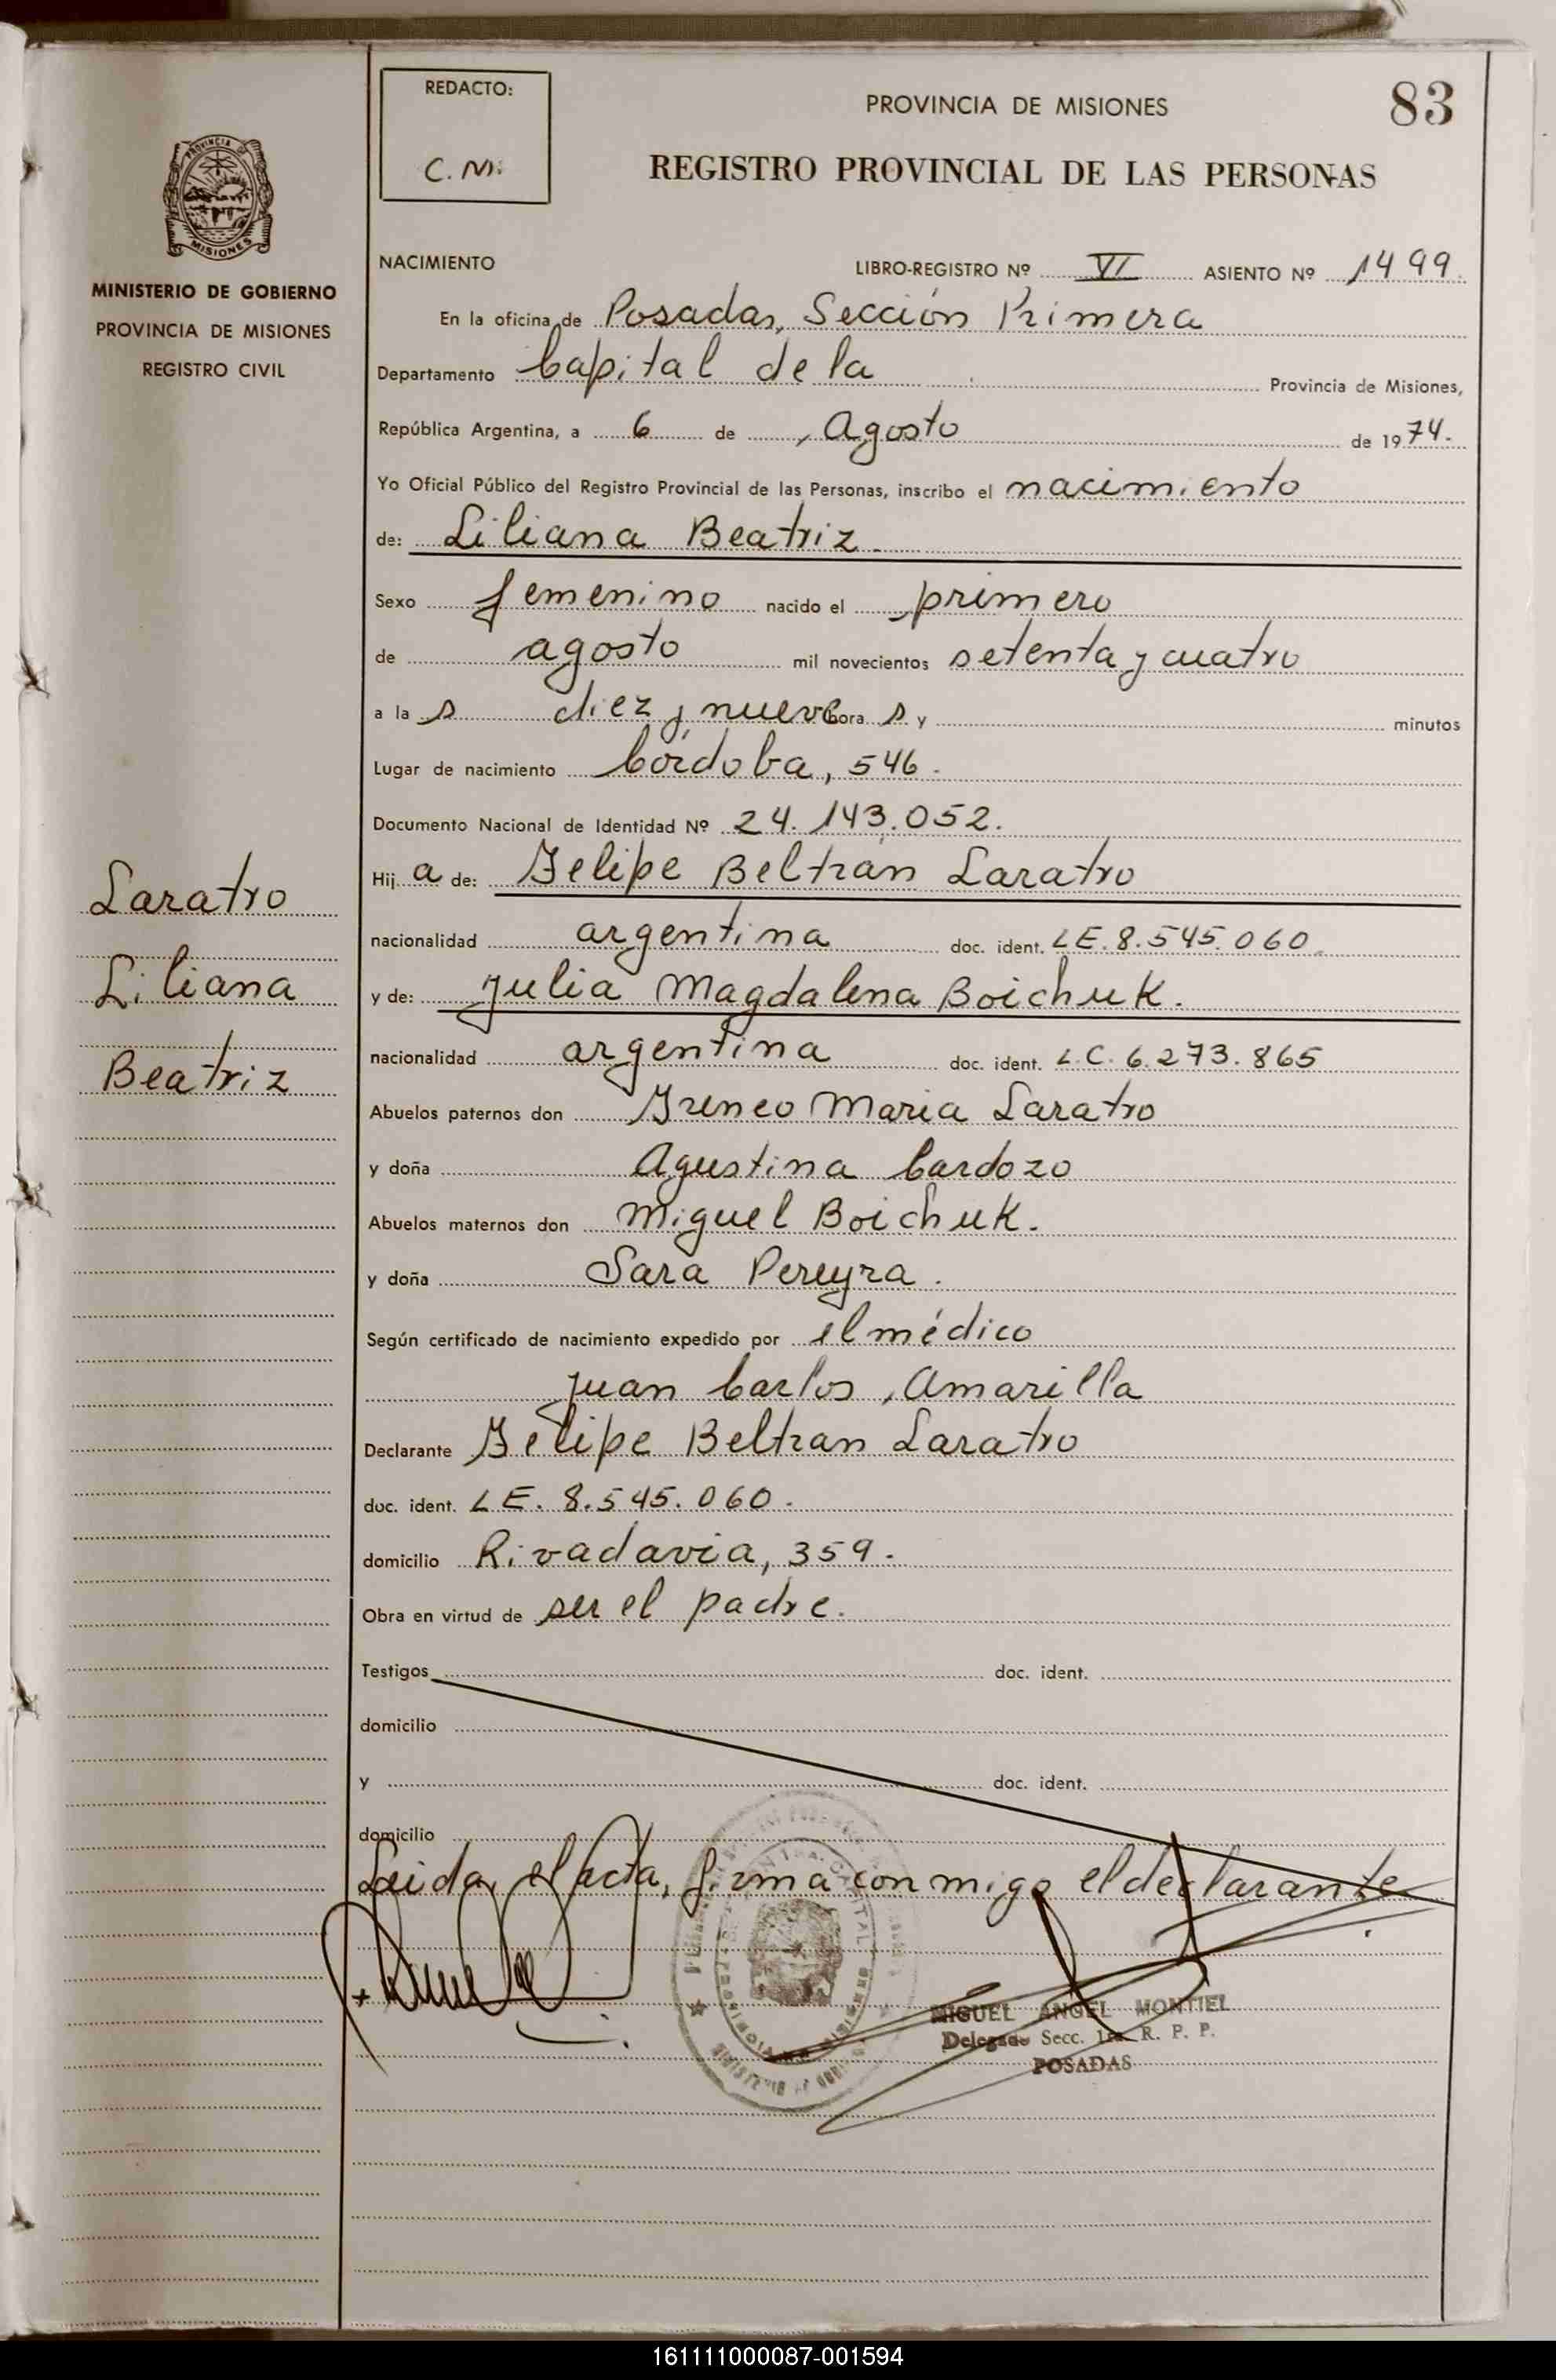 REDACTO:
C. M.
PROVINCIA DE MISIONES
83
REGISTRO PROVINCIAL DE LAS PERSONAS
MISIONES
MINISTERIO DE GOBIERNO
PROVINCIA DE MISIONES
REGISTRO CIVIL
NACIMIENTO LIBRO-REGISTRO Nº VI ASIENTO Nº 1499.
En la oficina de Posadas, Sección Primera
Departamento Capital de la Provincia de Misiones,
República Argentina, a 6 de Agosto de 1974.
Yo Oficial Público del Registro Provincial de las Personas, inscribo el nacimiento
de: Liliana Beatriz.
Sexo femenino nacido el primero
de agosto mil novecientos setenta y cuatro
a la s diez y nueve hora s y minutos
Lugar de nacimiento Córdoba, 546.
Documento Nacional de Identidad Nº 24.143.052.
Hij a de: Felipe Beltrán Laratro
nacionalidad argentina doc. ident. LE. 8.545.060.
y de: Julia Magdalena Boichuk.
nacionalidad argentina doc. ident. L.C. 6.273.865
Abuelos paternos don Ireneo Maria Laratro
y doña Agustina Cardozo
Abuelos maternos don Miguel Boichuk.
y doña Sara Pereyra.
Según certificado de nacimiento expedido por el médico
Juan Carlos Amarilla
Declarante Felipe Beltran Laratro
doc. ident. LE. 8.545.060.
domicilio Rivadavia, 359.
Obra en virtud de ser el padre.
Testigos doc. ident.
domicilio
y doc. ident.
domicilio
Leida el acta, firma conmigo el declarante
MIGUEL ANGEL MONTIEL
Delegado Secc. 1ra R. P. P.
POSADAS
Laratro
Liliana
Beatriz
161111000087-001594